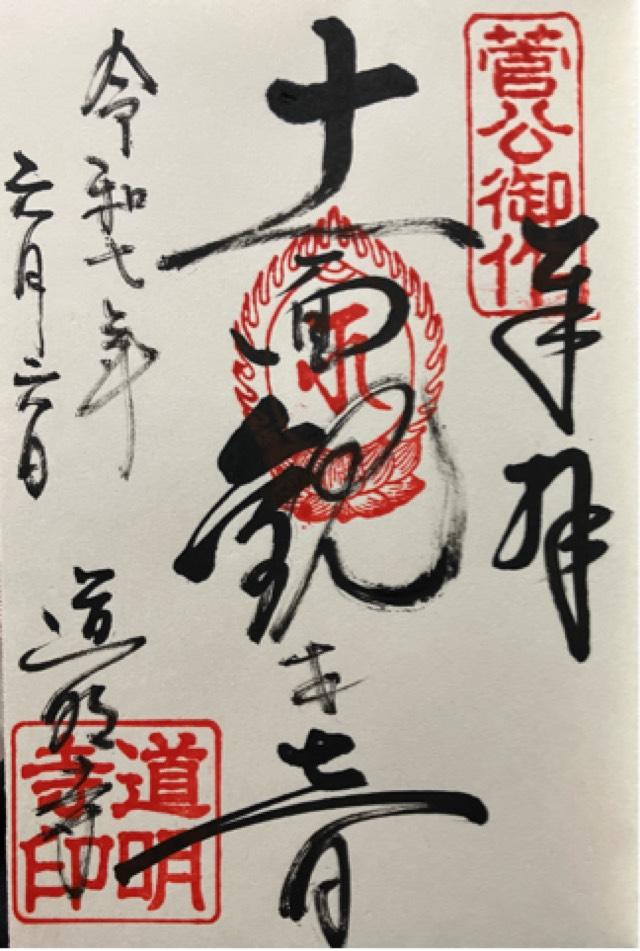 菅公御作
奉拝
十一面観世音
令和七年
六月六日
道明寺
道明
寺印